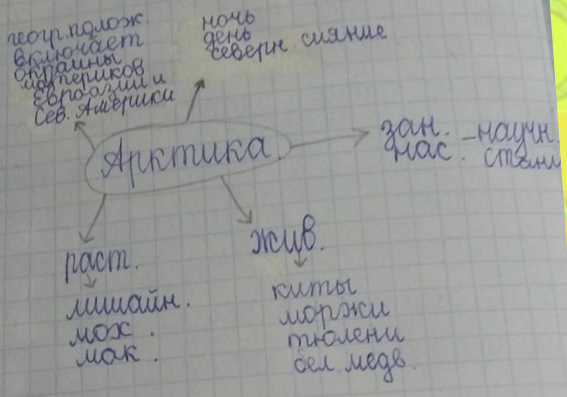 геогр. полож
включает
окраины
материков
Евразии и
Сев. Америки
ночь
день
северн. сияние
Арктика
зан. - научн.
нас. станц
раст.
лишайн.
мох.
мак.
жив.
киты
моржи
тюлени
бел. медв.